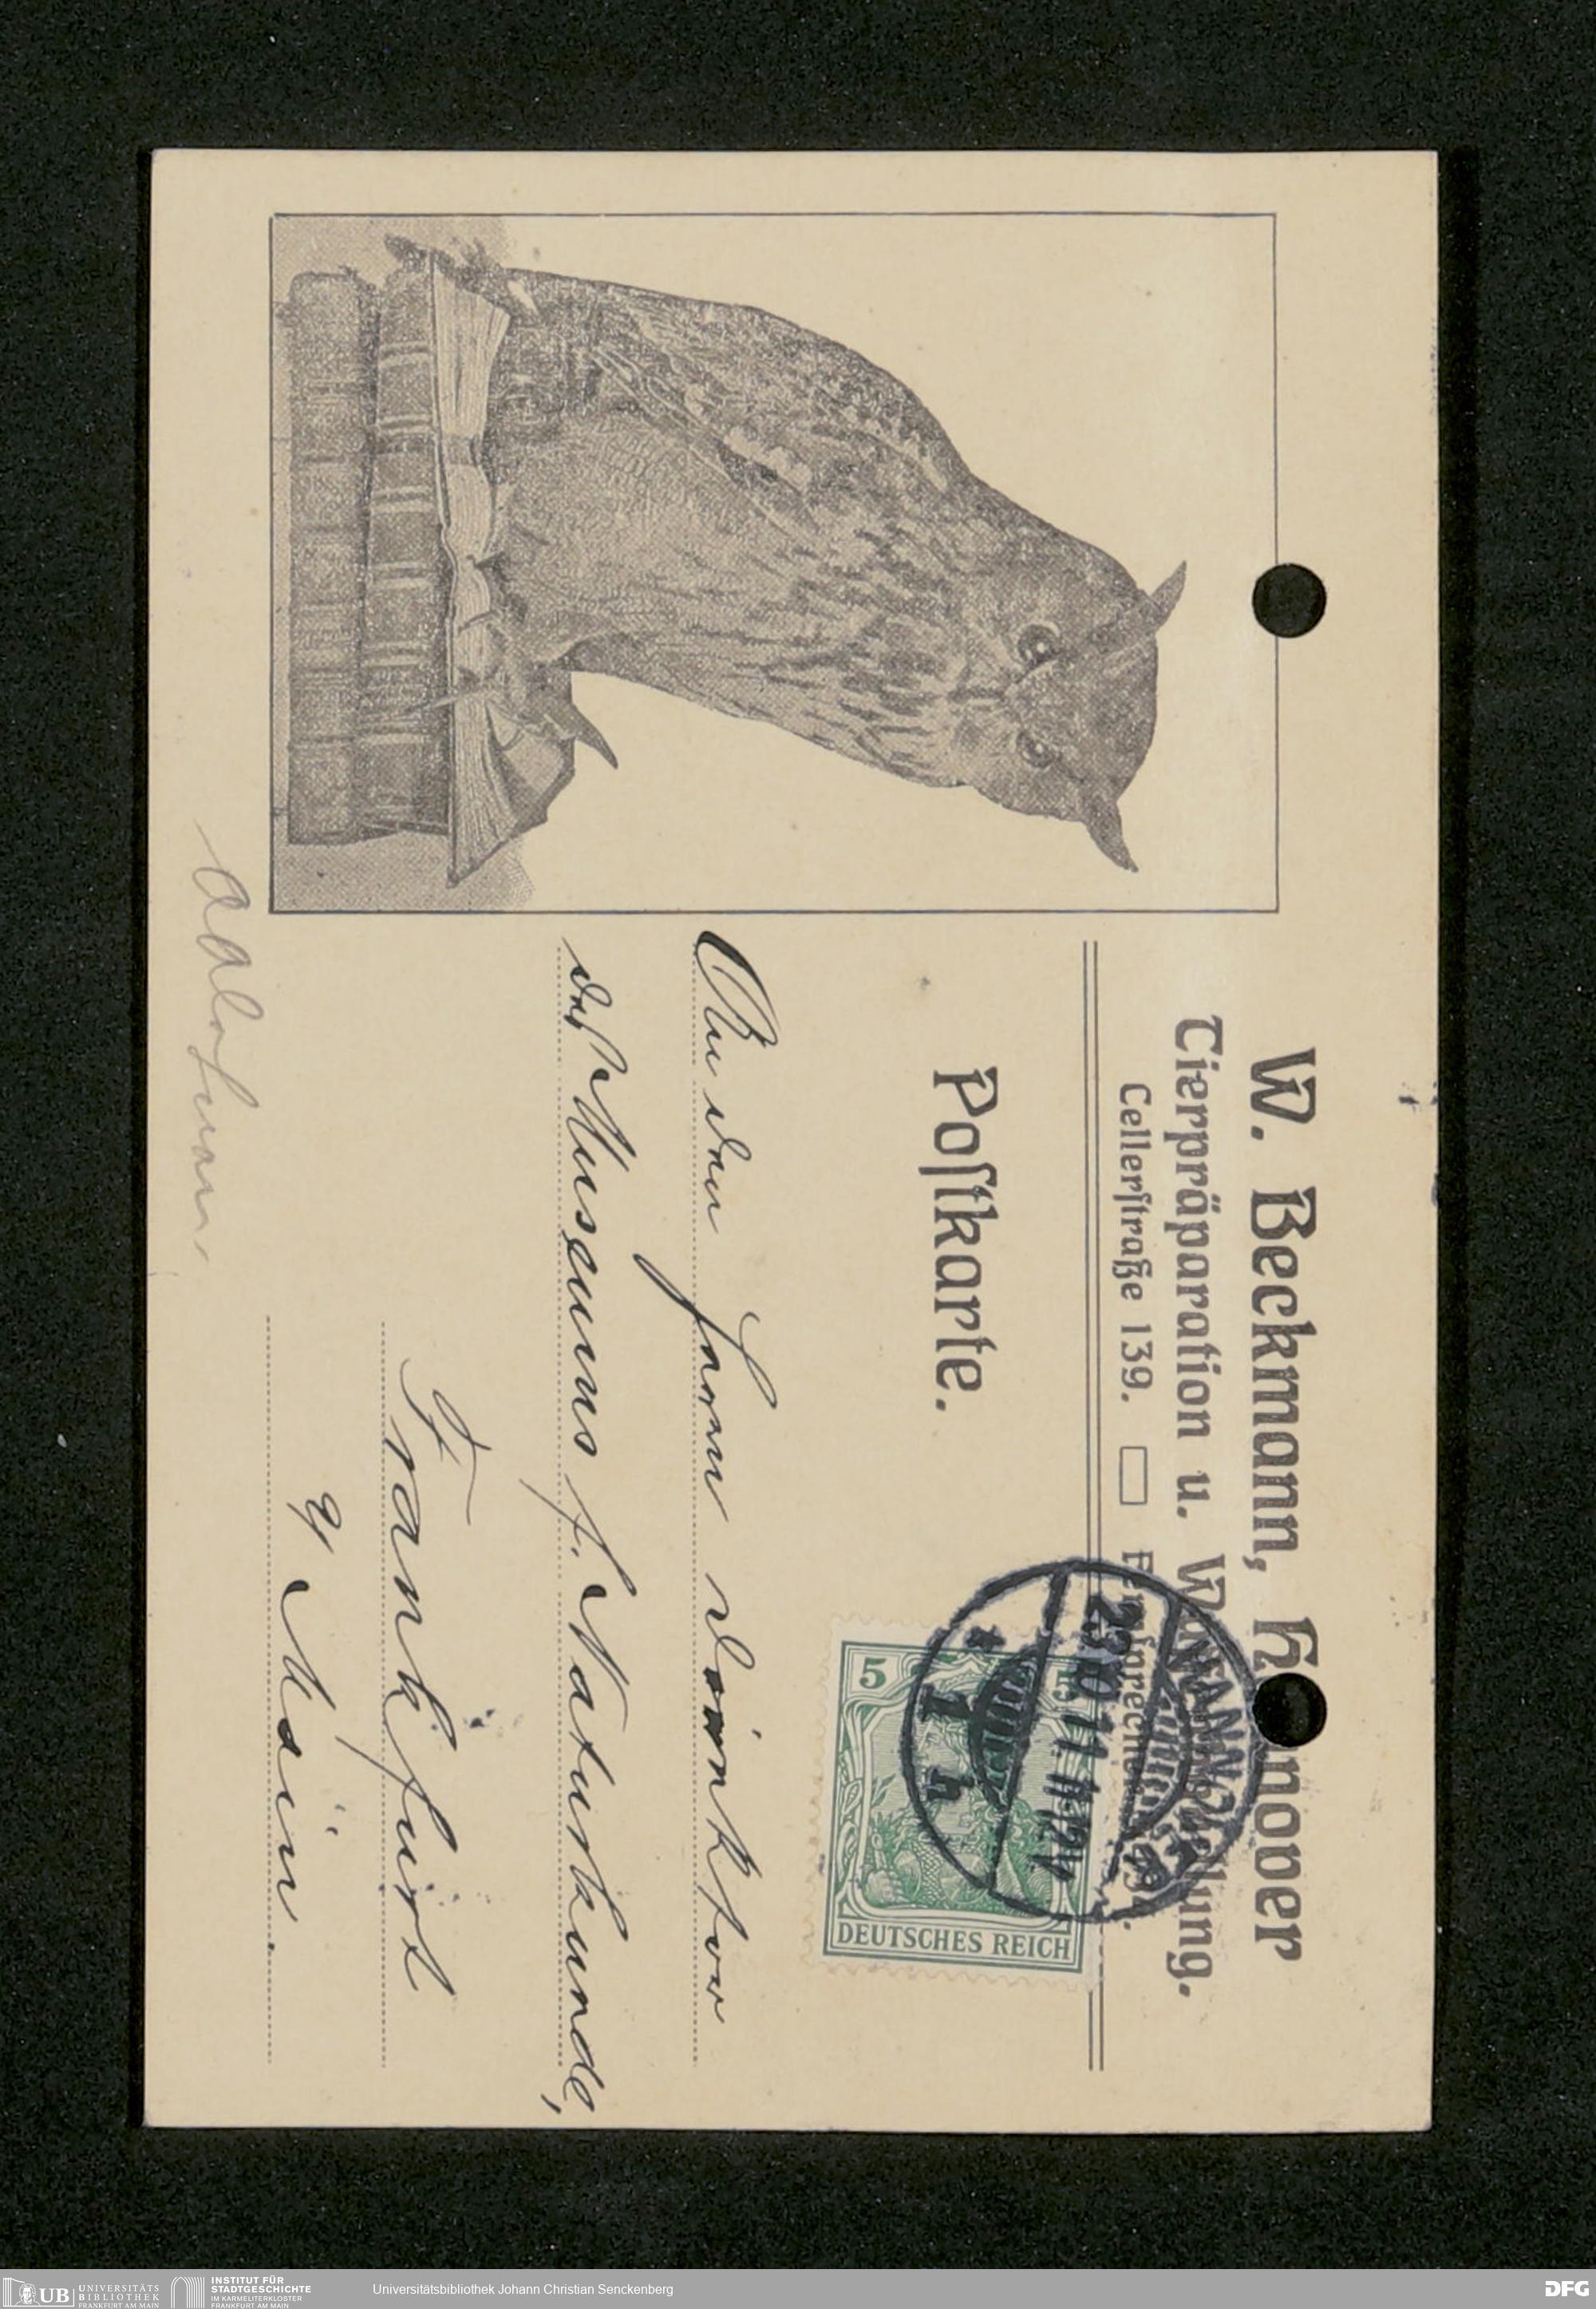 W. Beckmann, Hannover
Tierpräparation u. Handlung.
Cellerſtraße 139. Fernſprecher
Poſtkarte.
HANNOVER
23.10.11.11-12V
* 1 h
5 5
DEUTSCHES REICH
An den Herrn Direktor
des Museums f. Naturkunde,
Frankfurt
a/Main.
UB UNIVERSITÄTS
BIBLIOTHEK
FRANKFURT AM MAIN
INSTITUT FÜR
STADTGESCHICHTE
IM KARMELITERKLOSTER
FRANKFURT AM MAIN
Universitätsbibliothek Johann Christian Senckenberg
DFG